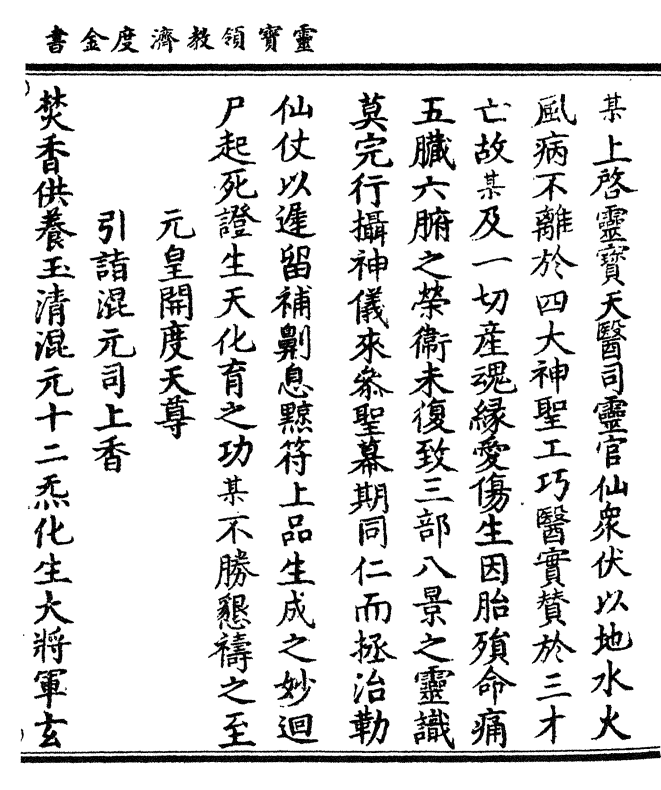 靈寶領教濟度金書
某上啓靈寶天醫司靈官仙衆伏以地水火
風病不離於四大神聖工巧醫實賛於三才
亡故某及一切産魂緣愛傷生因胎殞命痛
五臟六腑之榮衞未復致三部八景之靈識
莫完行攝神儀來叅聖幕期同仁而拯治勒
仙仗以遲留補劓息黥符上品生成之妙迴
尸起死證生天化育之功某不勝懇禱之至
元皇開度天尊
引詣混元司上香
焚香供養玉清混元十二炁化生大將軍玄